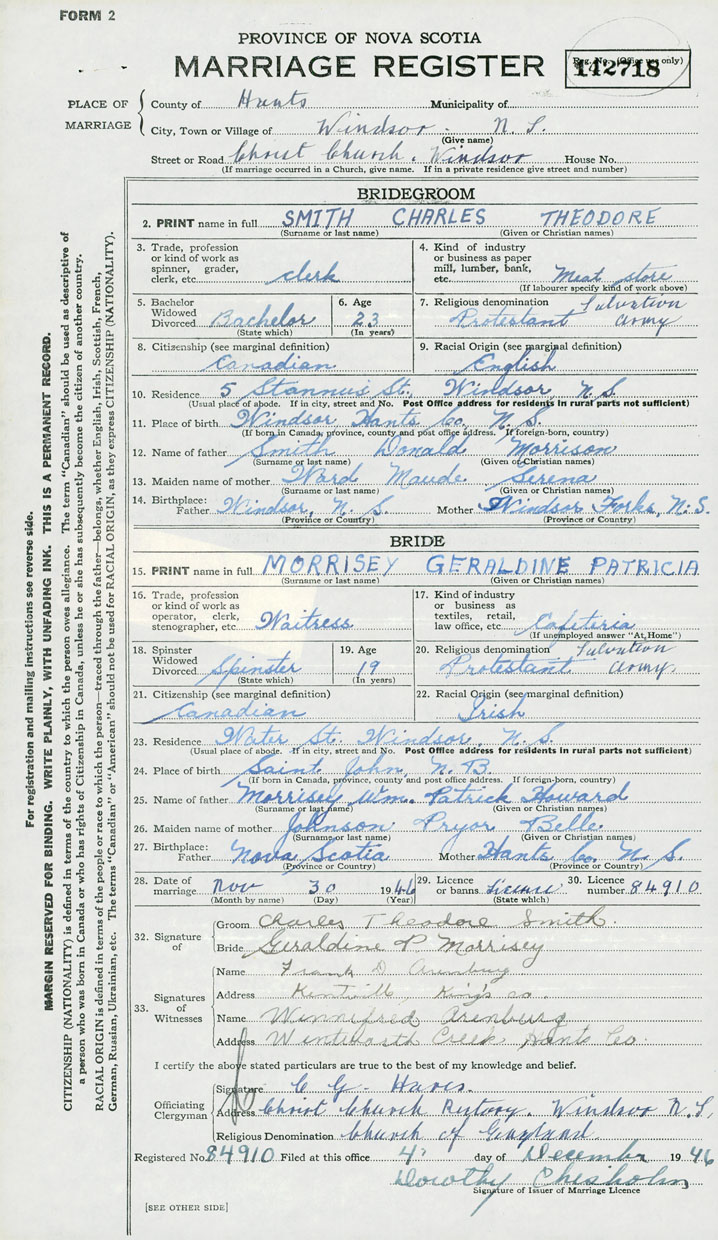 FORM 2
PROVINCE OF NOVA SCOTIA
MARRIAGE REGISTER
Reg. No. (Office use only)
142718
PLACE OF MARRIAGE
County of Hants Municipality of
City, Town or Village of Windsor. N. S.
(Give name)
Street or Road Christ Church, Windsor House No.
(If marriage occurred in a Church, give name. If in a private residence give street and number)
BRIDEGROOM
2. PRINT name in full SMITH CHARLES THEODORE
(Surname or last name) (Given or Christian names)
3. Trade, profession or kind of work as spinner, grader, clerk, etc. clerk
4. Kind of industry or business as paper mill, lumber, bank, etc. Meat store
(If labourer specify kind of work above)
5. Bachelor Widowed Divorced Bachelor
(State which)
6. Age 23
(In years)
7. Religious denomination Salvation
Protestant Army
8. Citizenship (see marginal definition)
Canadian
9. Racial Origin (see marginal definition)
English
10. Residence 5 Stannus St. Windsor N S
(Usual place of abode. If in city, street and No. Post Office address for residents in rural parts not sufficient)
11. Place of birth Windsor Hants Co. N. S.
(If born in Canada, province, county and post office address. If foreign-born, country)
12. Name of father Smith Donald Morrison
(Surname or last name) (Given or Christian names)
13. Maiden name of mother Ward Maude Serena
(Surname or last name) (Given or Christian names)
14. Birthplace: Father Windsor, N. S. Mother Windsor Forks, N.S.
(Province or Country) (Province or Country)
BRIDE
15. PRINT name in full MORRISEY GERALDINE PATRICIA
(Surname or last name) (Given or Christian names)
16. Trade, profession or kind of work as operator, clerk, stenographer, etc. Waitress
17. Kind of industry or business as textiles, retail, law office, etc. Cafeteria
(If unemployed answer "At Home")
18. Spinster Widowed Divorced Spinster
(State which)
19. Age 19
(In years)
20. Religious denomination Salvation
Protestant Army.
21. Citizenship (see marginal definition)
Canadian
22. Racial Origin (see marginal definition)
Irish
23. Residence Water St. Windsor, N. S.
(Usual place of abode. If in city, street and No. Post Office address for residents in rural parts not sufficient)
24. Place of birth Saint John, N. B.
(If born in Canada, province, county and post office address. If foreign-born, country)
25. Name of father Morrisey Wm. Patrick Howard
(Surname or last name) (Given or Christian names)
26. Maiden name of mother Johnson Pryor Belle
(Surname or last name) (Given or Christian names)
27. Birthplace: Father Nova Scotia Mother Hants Co. N. S.
(Province or Country) (Province or Country)
28. Date of marriage Nov 30 1946
(Month by name) (Day) (Year)
29. Licence or banns License
(State which)
30. Licence number 84910
32. Signature of
Groom Charles Theodore Smith.
Bride Geraldine P Morrisey
33. Signatures of Witnesses
Name Frank D Arenburg
Address Kentville, King's co.
Name Winnifred Arenburg
Address Wentworth Creek Hants Co.
I certify the above stated particulars are to the best of my knowledge and belief.
Officiating Clergyman
Signature C G
Address Christ Church Rectory. Windsor N.S.
Religious Denomination Church of England.
Registered No. 84910 Filed at this office 4 day of December 1946
Dorothy Chisholm
Signature of Issuer of Marriage Licence
[SEE OTHER SIDE]
For registration and mailing instructions see reverse side.
MARGIN RESERVED FOR BINDING. WRITE PLAINLY, WITH UNFADING INK. THIS IS A PERMANENT RECORD.
CITIZENSHIP (NATIONALITY) is defined in terms of the country to which the person owes allegiance. The term "Canadian" should be used as descriptive of
a person who was born in Canada or who has rights of Citizenship in Canada, unless he or she has subsequently become the citizen of another country.
RACIAL ORIGIN is defined in terms of the people or race to which the person—traced through the father—belongs, whether English, Irish, Scottish, French,
German, Russian, Ukrainian, etc. The terms "Canadian" or "American" should not be used for RACIAL ORIGIN, as they express CITIZENSHIP (NATIONALITY).